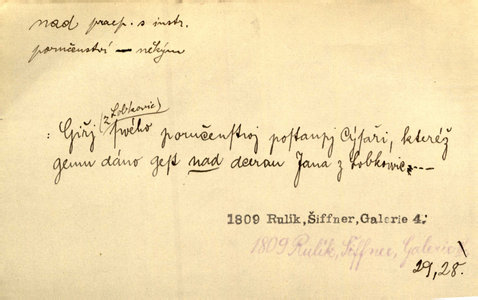 nad praep. s instr.
poručenství — někým
(z Lobkovic)
: Giřj swého poručenstwj postaupj Cýsaři, kteréž
gemu dáno gest nad dcerau Jana z Lobkowic, ---
1809 Rulík, Šiffner, Galerie 4.
1809 Rulík, Šiffner, Galerie
29, 28.